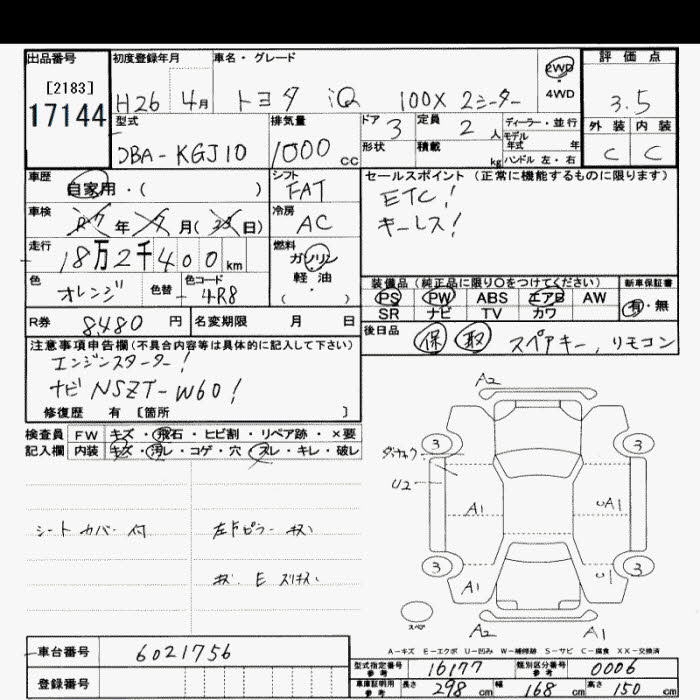 出品番号 初度登録年月 車名・グレード 2WD 評価点
[2183] 4WD
17144 H26 4月 トヨタ iQ 100X 2シーター 3.5
型式 排気量 ドア 3 定員 2 人 ディーラー・並行 外装 内装
モデル年式 年
DBA-KGJ10 1000 cc 形状 積載 kg ハンドル 左・右 C C
車歴 シフト セールスポイント (正常に機能するものに限ります)
自家用・( ) FAT ETC!
車検 R7 年 7 月( 23 日) 冷房 AC キーレス!
走行 18万2千400km 燃料 ガソリン
軽・油
( )
色 オレンジ 色替 色コード 4R8 装備品 (純正品に限り〇をつけてください) 新車保証書
PS PW ABS エアB AW 有・無
SR ナビ TV カワ
R券 8480 円 名変期限 月 日 後日品 保 取 スペアキー, リモコン
注意事項申告欄(不具合内容等は具体的に記入して下さい)
エンジンスターター!
ナビ NSZT-W60!
修復歴 有 [箇所 ]
検査員 FW キズ・飛石・ヒビ割・リペア跡・×要
記入欄 内装 キズ・汚レ・コゲ・穴・スレ・キレ・破レ
A2
3 3
U2
A1 A1
シートカバー付
3 3
A1 U1
スペア
A2 A1
A-キズ E-エクボ U-凹み W-補修跡 S-サビ C-腐食 XX-交換済
車台番号 6021756
型式指定番号 参考 16177 類別区分番号 参考 0006
登録番号
車庫証明用 参考 長さ 298 cm 幅 168 cm 高さ 150 cm